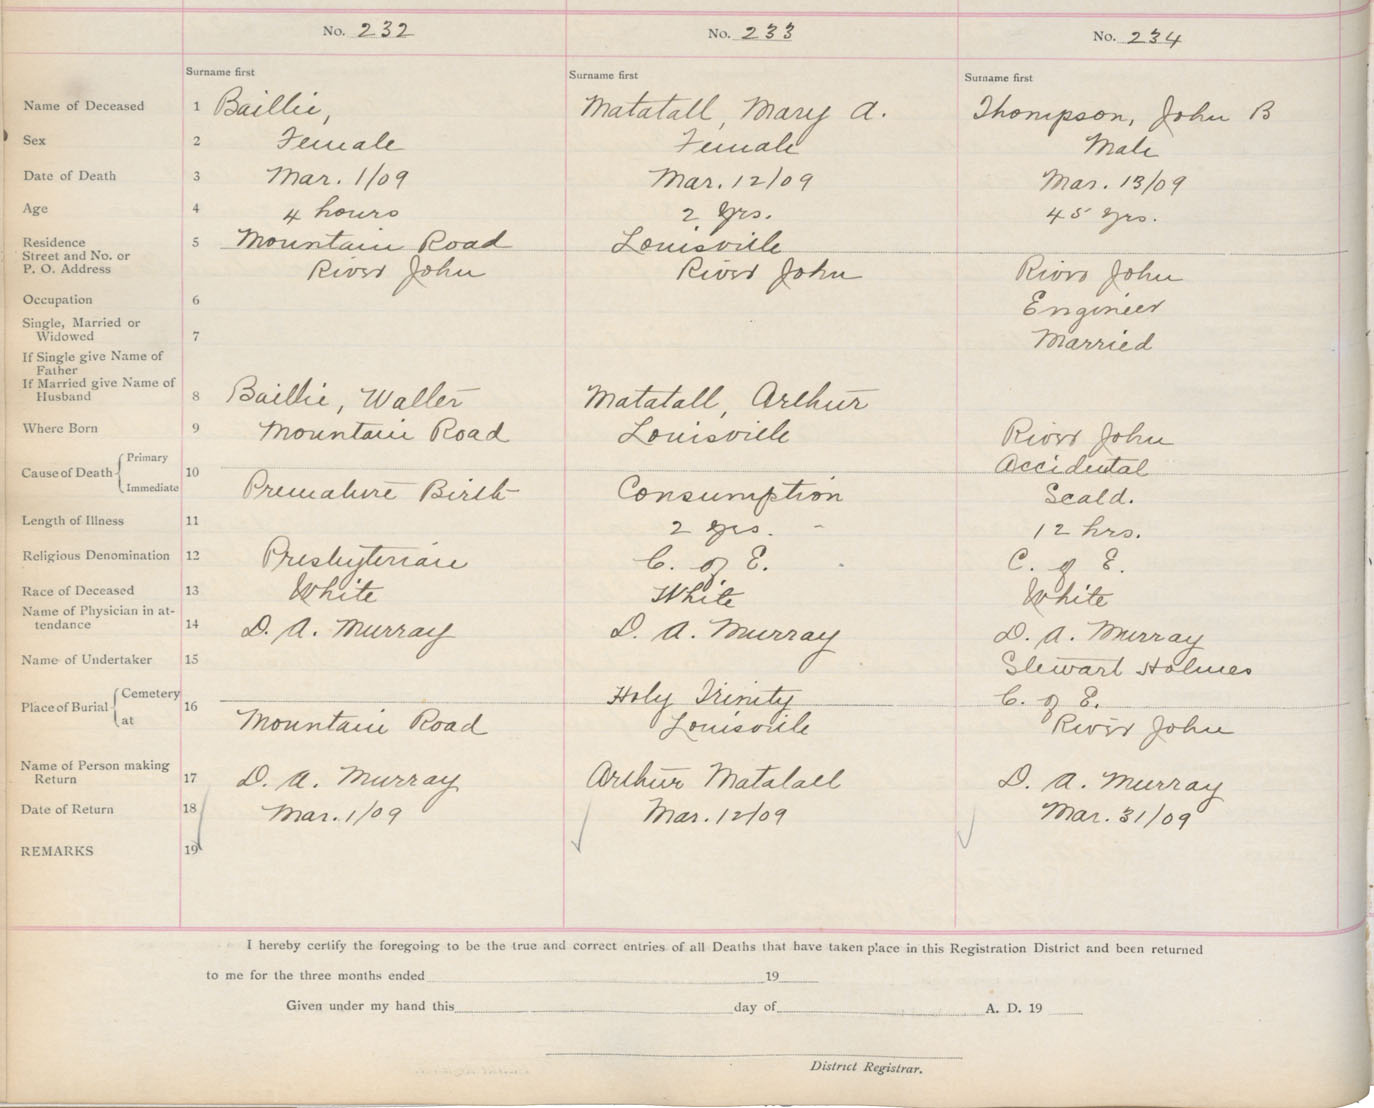 No. 232 No. 233 No. 234
Surname first Surname first Surname first
Name of Deceased 1 Baillie, Matatall, Mary A. Thompson, John B
Sex 2 Female Female Male
Date of Death 3 Mar. 1/09 Mar. 12/09 Mar. 13/09
Age 4 4 hours 2 yrs. 45 yrs.
Residence 5 Mountain Road Louisville
Street and No. or
P. O. Address River John River John River John
Occupation 6 Engineer
Single, Married or
Widowed 7 Married
If Single give Name of
Father
If Married give Name of
Husband 8 Baillie, Walter Matatall, Arthur
Where Born 9 Mountain Road Louisville River John
Cause of Death Primary 10 Accidental
Immediate Premature Birth Consumption Scald.
Length of Illness 11 2 yrs. 12 hrs.
Religious Denomination 12 Presbyterian C. of E. C. of E.
Race of Deceased 13 White White White
Name of Physician in at-
tendance 14 D. A. Murray D. A. Murray D. A. Murray
Name of Undertaker 15 Stewart Holmes
Place of Burial Cemetery 16 Holy Trinity C. of E.
at Mountain Road Louisville River John
Name of Person making
Return 17 D. A. Murray Arthur Matatall D. A. Murray
Date of Return 18 Mar. 1/09 Mar. 12/09 Mar. 31/09
REMARKS 19
I hereby certify the foregoing to be the true and correct entries of all Deaths that have taken place in this Registration District and been returned
to me for the three months ended 19
Given under my hand this day of A. D. 19
District Registrar.